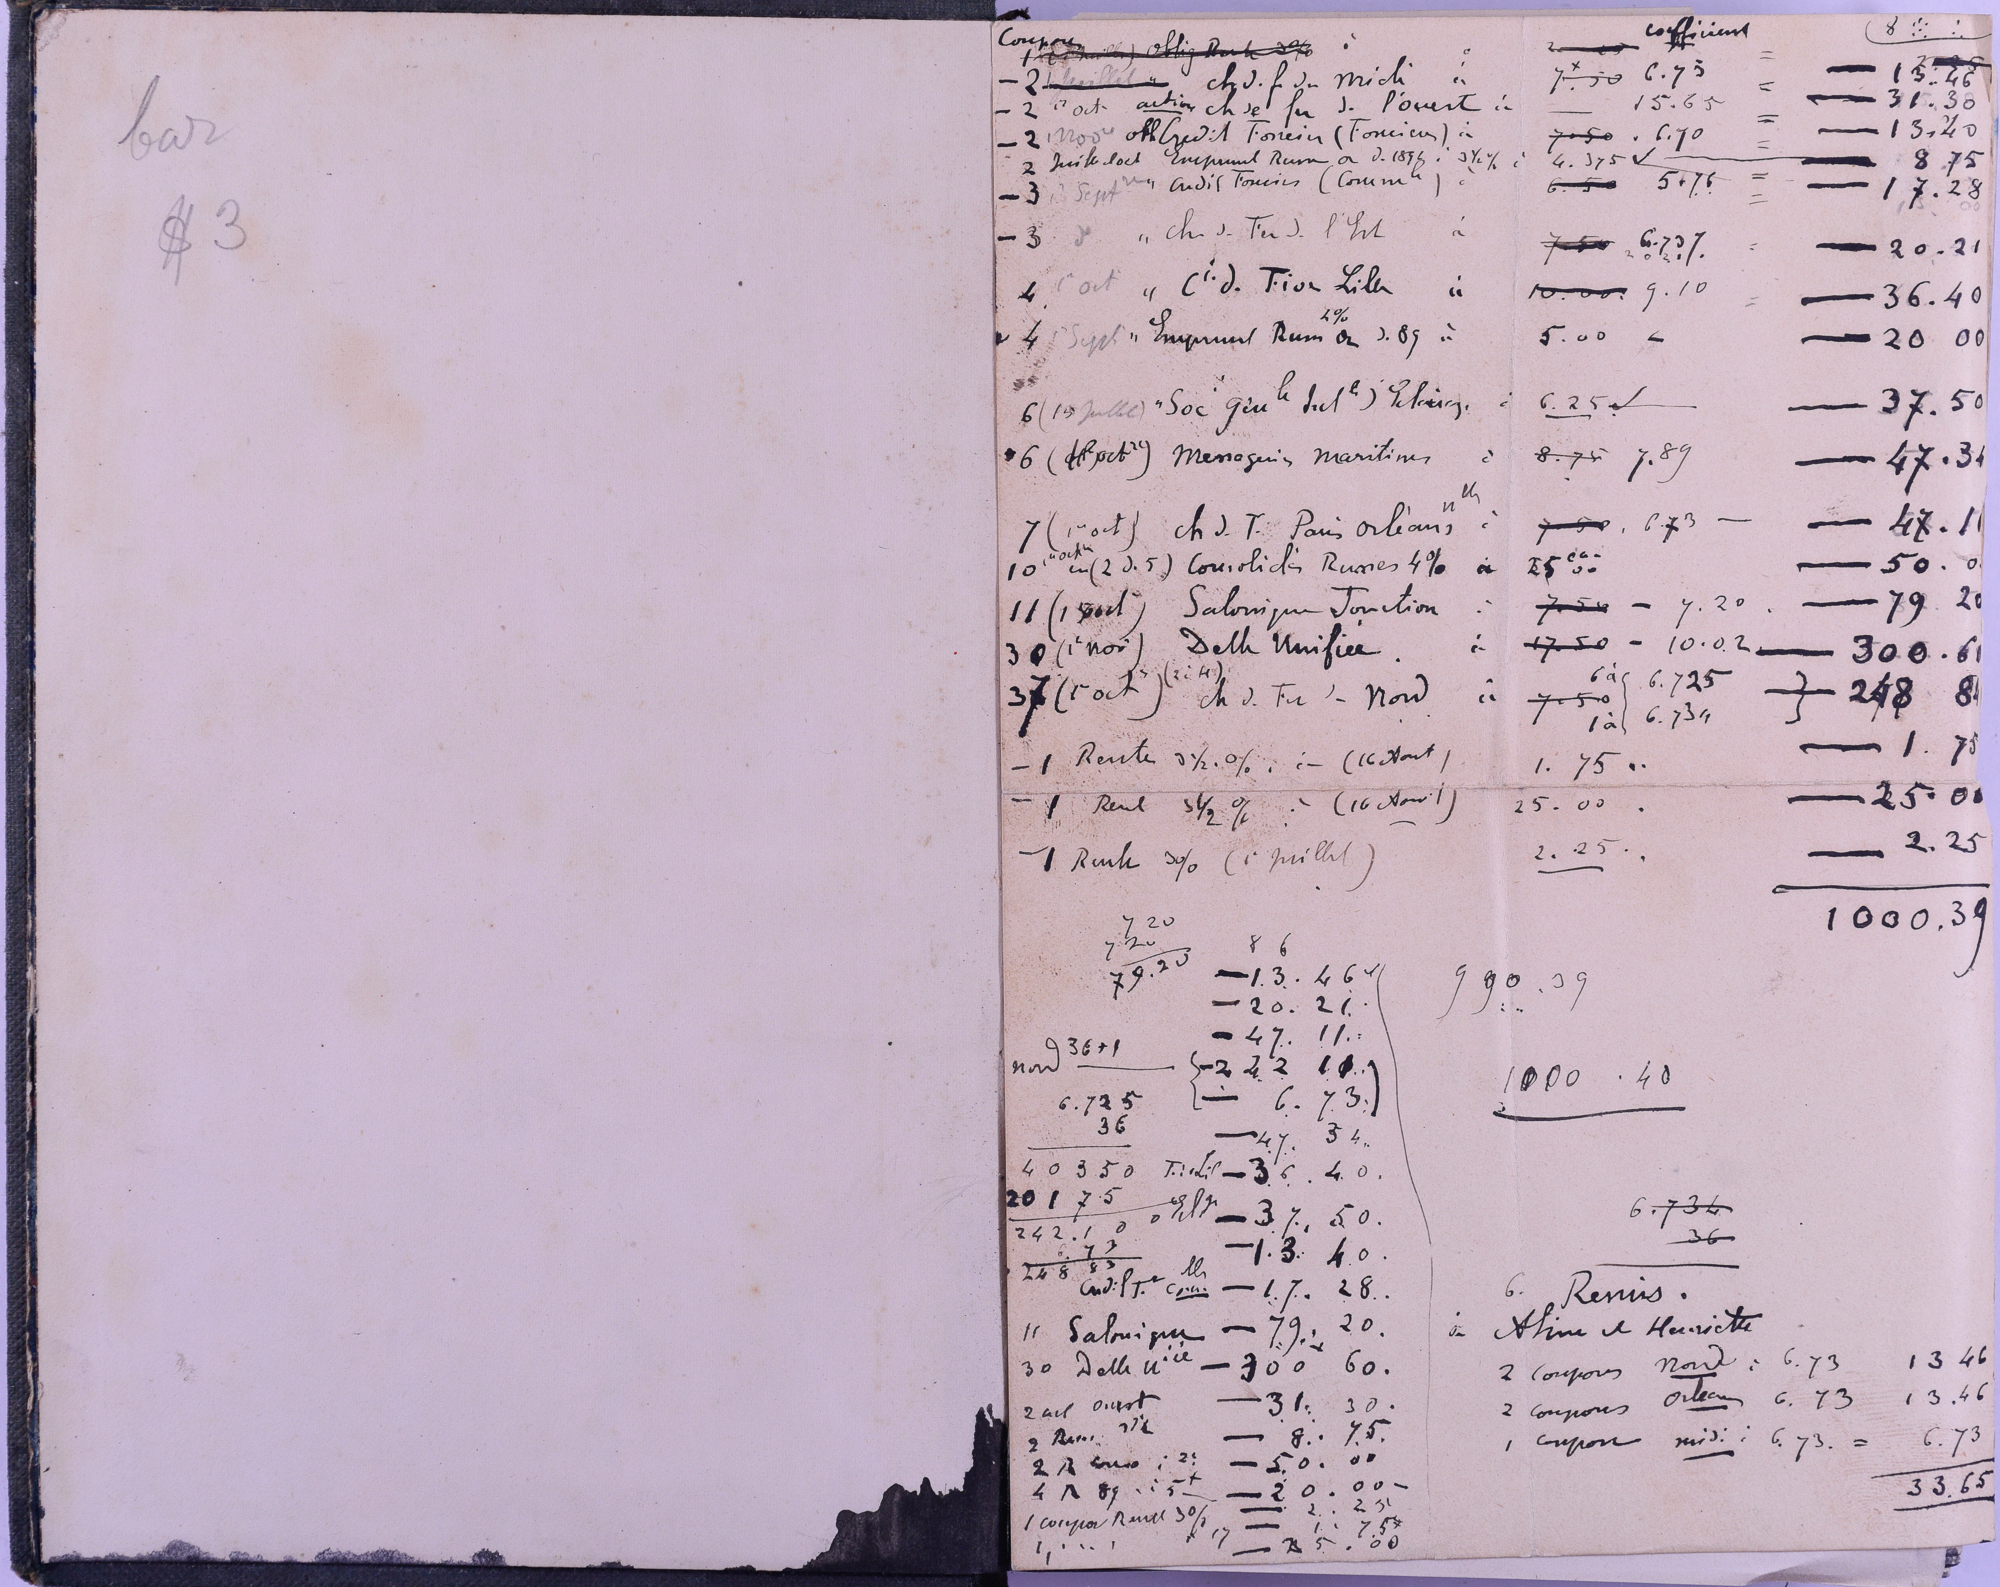 bar
$3
Coupons coefficient
1 oblig Rente 3%
- 2 ch d. f. du Midi à 7.50 6.73 = 13.46
- 2 1er oct action ch de fer d. l'ouest à 15.65 = 31.30
- 2 Nov obl Credit Foncier (Foncieres) à 7.50 . 6.70 = 13.40
2 Emprunt Russe or d. 1894 à 3½% à 4.375 8 75
- 3 Sept " Credit Foncier (Comm) à 6.50 5.76 = 17.28
- 3 d° " ch. d. Fer d. l'Est à 7.50 6.737 = 20.21
4 1er oct " Cie d. Lille à 10.00. 9.10 = 36.40
4 Sept " Emprunt Russe 4% or d. 89 à 5.00 20 00
6 (15 Juillet) " Soc Génle à 6.25 37.50
6 (oct) Messageries maritimes à 8.75 7.89 47.34
7 (1er oct) ch. d. F. Paris Orléans à 7.50 . 6.73 47.11
10 (2 d. 5) Consolidés Russes 4% à 25 00 50.0
11 (15 oct) Salonique Jonction à 7.50 - 7.20 . 79 20
30 (1er nov) Dette Unifiée . à 17.50 - 10.02 300.6
37 (1er oct) ch d. Fer d. Nord à 7.50 6 à 6.725 248 8
1 à 6.734
- 1 Rente 3½.%. à (16 Aout) 1. 75 .. 1. 75
- 1 Rente 3½% à (16 Avril) 25.00 . 25.00
- 1 Rente 3% (1er Juillet) 2.25. . 2.25
1000.39
7 20
7 20
79.20
8 6
13.46
20.21.
47.11.
990.39
nord 36+1
242 10
6.73
1000.40
6.725
36
47. 34.
40350
36.40.
20175
37.50.
242.100
6.73
248 83
13.40.
6.734
36
Credit Fer Com. 17.28.
11 Salonique - 79. 20.
30 Dette Uiée - 300 60.
2 act ouest - 31. 30.
2 Russe - 8. 75.
2 R Conso à 25 - 50.00
4 R 89 à 5 - 20.00 -
1 coupon Rente 3% - 2. 25
1. 75
25.00
6. Remis.
à Aline et Henriette
2 coupons Nord à 6.73 13 46
2 coupons Orleans 6.73 13.46
1 coupon midi à 6.73. = 6.73
33.65